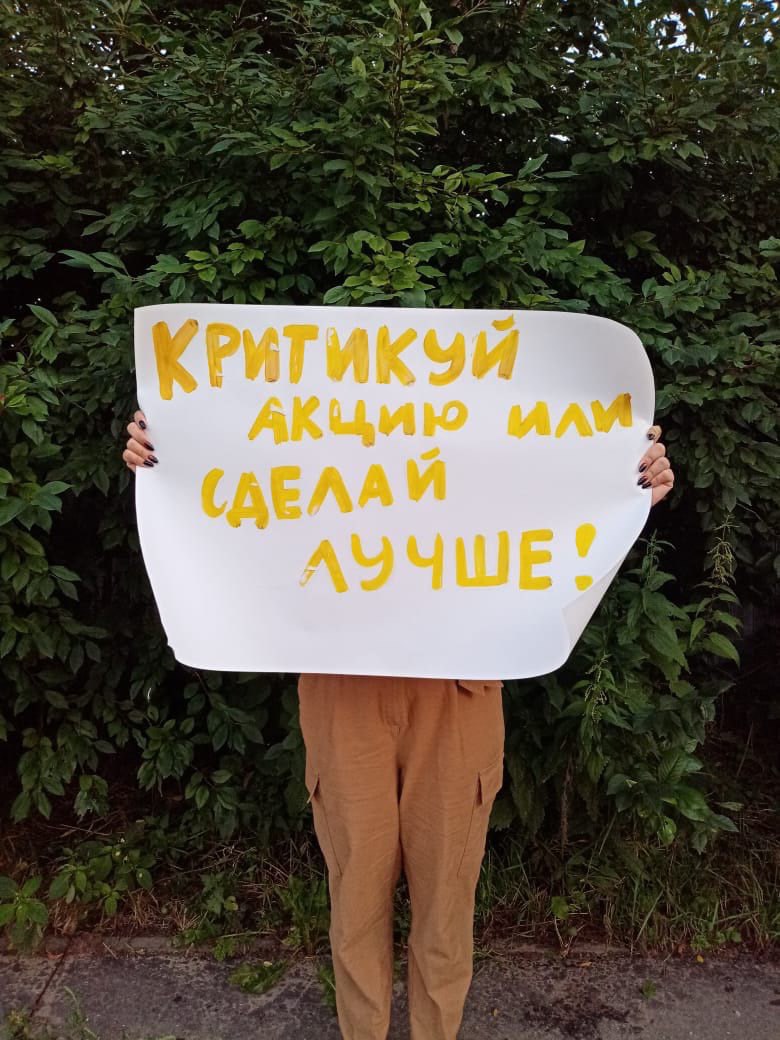 КРИТИКУЙ
АКЦИЮ ИЛИ
СДЕЛАЙ
ЛУЧШЕ!